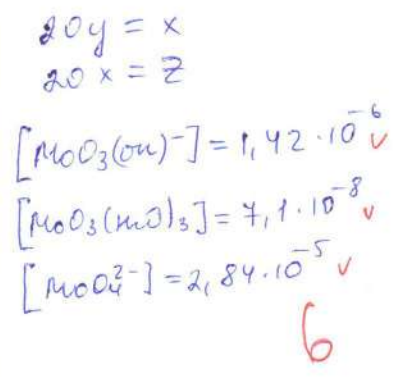 20y = x
20x = z
[MoO₃(OH)⁻] = 1,42·10⁻⁶ v
[MoO₃(H₂O)₃] = 7,1·10⁻⁸ v
[MoO₄²⁻] = 2,84·10⁻⁵ v
6